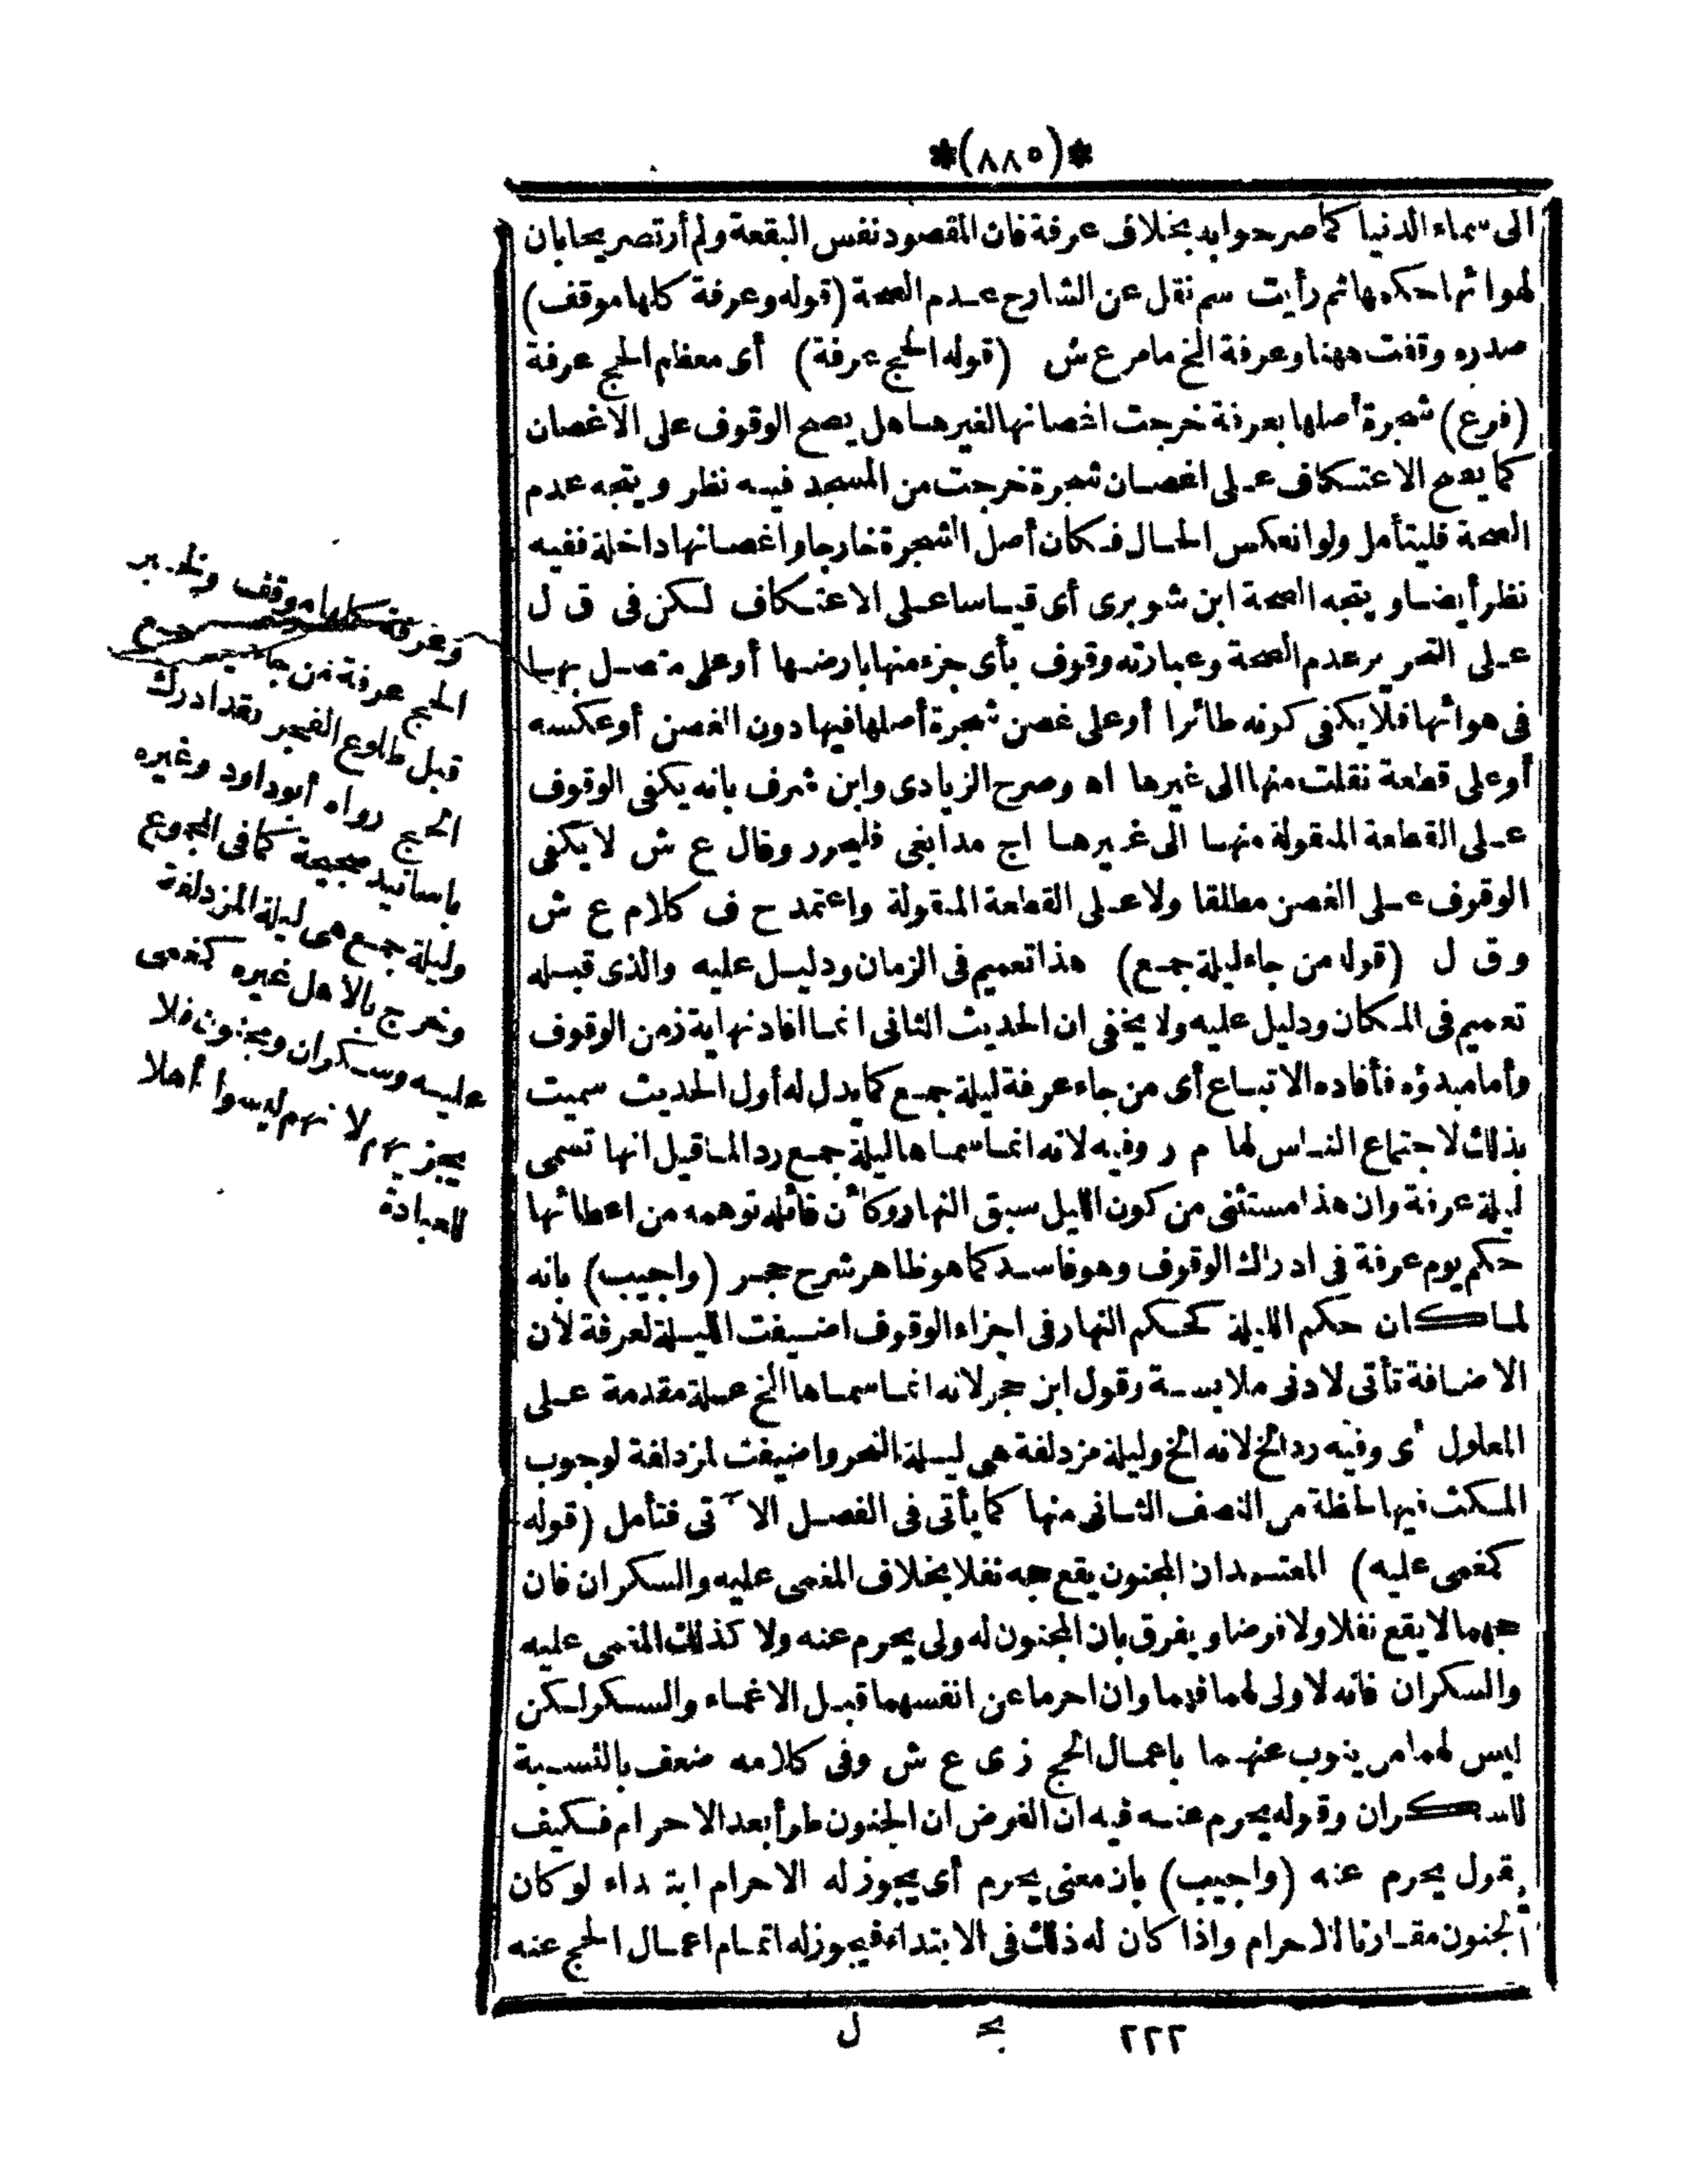 *(٨٨٥)*
الى سماء الدنيا كما صرحوا به بخلاف عرفة فان المقصود نفس البقعة ولم أر تصريحا بان
لهوائها حكمها ثم رأيت سم نقل عن الشارح عدم الصحة (قوله وعرفة كلها موقف)
صدره وقفت ههنا وعرفة الخ مامر ع ش (قوله الحج عرفة) أى معظم الحج عرفة
(فرع) شجرة أصلها بعرفة خرجت اغصانها لغيرها هل يصح الوقوف على الاغصان
كما يصح الاعتكاف على اغصان شجرة خرجت من المسجد فيه نظر ويتجه عدم
الصحة فليتأمل ولو انعكس الحال فكان أصل الشجرة خارجا واغصانها داخلة ففيه
نظر أيضا ويتجه الصحة ابن شوبرى أى قياسا على الاعتكاف لكن فى ق ل
على التحرير عدم الصحة وعبارته وقوف بأى جزء منها بارضها أو على متصل بها
فى هوائها فلا يكفى كونه طائرا أو على غصن شجرة أصلها فيها دون الغصن أو عكسه
أو على قطعة نقلت منها الى غيرها اه وصرح الزيادى وابن شرف بانه يكفى الوقوف
على القطعة المنقولة منها الى غيرها اج مدابغى فليحرر وقال ع ش لا يكفى
الوقوف على الغصن مطلقا ولا على القطعة المنقولة واعتمد ح ف كلام ع ش
وق ل (قوله من جاء ليلة جمع) هذا تعميم فى الزمان ودليل عليه والذى قبله
تعميم فى المكان ودليل عليه ولا يخفى ان الحديث الثانى انما افاد نهاية زمن الوقوف
وأما مبدؤه فأفاده الاتباع أى من جاء عرفة ليلة جمع كما يدل له أول الحديث سميت
بذلك لاجتماع الناس لها م ر وفيه لانه انما سماها ليلة جمع رد لما قيل انها تسمى
ليلة عرفة وان هذا مستثنى من كون الليل سبق النهار وكأن قائله توهمه من اعطائها
حكم يوم عرفة فى ادراك الوقوف وهو فاسد كما هو ظاهر شرح حجر (واجيب) بانه
لما كان حكم الليلة كحكم النهار فى اجزاء الوقوف اضيفت الليلة لعرفة لان
الاضافة تأتى لادنى ملابسة وقول ابن حجر لانه انما سماها الخ علة مقدمة على
المعلول أى وفيه رد الخ لانه الخ وليلة مزدلفة هى ليلة النحر واضيفت لمزدلفة لوجوب
المكث فيها لحظة من النصف الثانى منها كما يأتى فى الفصل الآتى فتأمل (قوله
كمغمى عليه) المعتمد ان المجنون يقع حجه نفلا بخلاف المغمى عليه والسكران فان
حجهما لا يقع نفلا ولا فرضا ويفرق بان المجنون له ولى يحرم عنه ولا كذلك المغمى عليه
والسكران فانه لا ولى لهما فهما وان احرما عن انفسهما قبل الاغماء والسكر لكن
ليس لهما من ينوب عنهما باعمال الحج ز ى ع ش وفى كلامه ضعف بالنسبة
للسكران وقوله يحرم عنه فيه ان الفرض ان الجنون طرأ بعد الاحرام فكيف
يقول يحرم عنه (واجيب) بان معنى يحرم أى يجوز له الاحرام ابتداء لو كان
الجنون مقارنا للاحرام واذا كان له ذلك فى الابتداء فيجوز له اتمام اعمال الحج عنه
وعرفة كلها موقف وخبر
الحج عرفة من جاء ليلة جمع
قبل طلوع الفجر فقد ادرك
الحج رواه أبو داود وغيره
باسانيد صحيحة كما فى المجموع
وليلة جمع هى ليلة المزدلفة
وخرج بالاهل غيره كمغمى
عليه وسكران ومجنون فلا
يجزيهم لانهم ليسوا أهلا
للعبادة
٢٢٢ بج ل